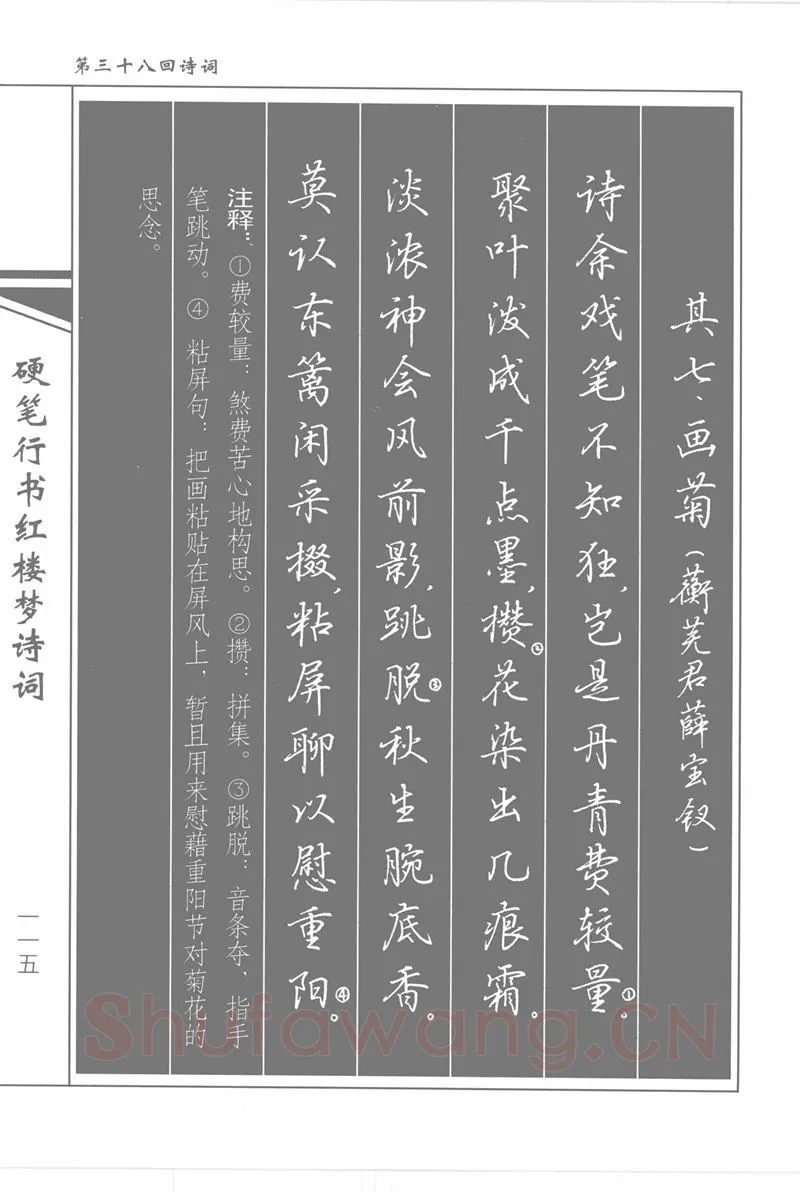 第三十八回诗词
其七、画菊(蘅芜君薛宝钗)
诗余戏笔不知狂,岂是丹青费较量①。
聚叶泼成千点墨,攒②花染出几痕霜。
淡浓神会风前影,跳脱③秋生腕底香。
莫认东篱闲采掇,粘屏聊以慰重阳④。
注释:①费较量:煞费苦心地构思。②攒:拼集。③跳脱:音条夺,指手
笔跳动。④粘屏句:把画粘贴在屏风上,暂且用来慰藉重阳节对菊花的
思念。
硬笔行书红楼梦诗词
一一五
Shufawang.CN